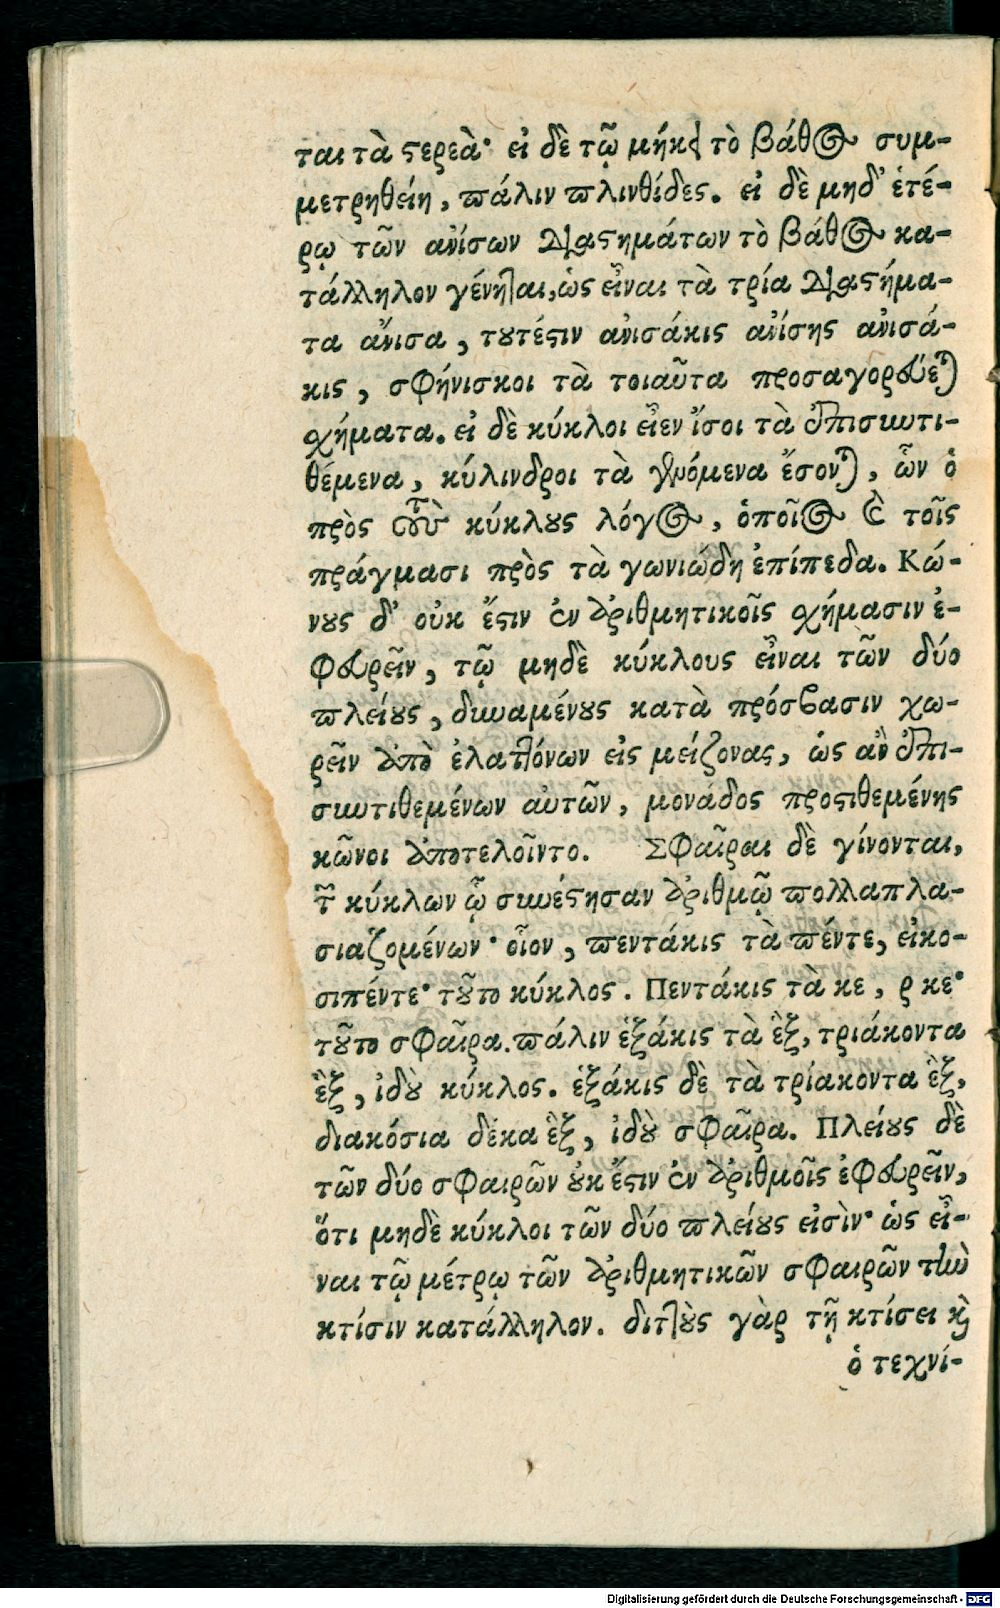 ται τὰ στερεὰ· εἰ δὲ τῷ μήκει τὸ βάθος συμ-
μετρηθείη, πάλιν πλινθίδες. εἰ δὲ μηδ' ἑτέ-
ρῳ τῶν ἀνίσων διαστημάτων τὸ βάθος κα-
τάλληλον γένηται, ὡς εἶναι τὰ τρία διαστήμα-
τα ἄνισα, τουτέστιν ἀνισάκις ἀνίσης ἀνισά-
κις, σφήνισκοι τὰ τοιαῦτα προσαγορεύεται
σχήματα. εἰ δὲ κύκλοι εἶεν ἴσοι τὰ ἐπισυντι-
θέμενα, κύλινδροι τὰ γινόμενα ἔσονται, ὧν ὁ
πρὸς τοὺς κύκλους λόγος, ὁποῖος ἐ τοῖς
πράγμασι πρὸς τὰ γωνιώδη ἐπίπεδα. Κώ-
νους δ' οὐκ ἔστιν ἐν ἀριθμητικοῖς σχήμασιν ἐ-
φευρεῖν, τῷ μηδὲ κύκλους εἶναι τῶν δύο
πλείους, δυναμένους κατὰ πρόσβασιν χω-
ρεῖν ἀπὸ ἐλαττόνων εἰς μείζονας, ὡς ἂν ἐπι-
συντιθεμένων αὐτῶν, μονάδος προστιθεμένης
κῶνοι ἀποτελοῖντο. Σφαῖραι δὲ γίνονται,
τῶν κύκλων ᾧ συνέστησαν ἀριθμῷ πολλαπλα-
σιαζομένων· οἷον, πεντάκις τὰ πέντε, εἰκο-
σιπέντε· τοῦτο κύκλος. Πεντάκις τὰ κε, ρκε·
τοῦτο σφαῖρα. πάλιν ἑξάκις τὰ ἓξ, τριάκοντα
ἓξ, ἰδοὺ κύκλος. ἑξάκις δὲ τὰ τρίακοντα ἓξ,
διακόσια δέκα ἓξ, ἰδοὺ σφαῖρα. Πλείους δὲ
τῶν δύο σφαιρῶν οὐκ ἔστιν ἐν ἀριθμοῖς ἐφευρεῖν,
ὅτι μηδὲ κύκλοι τῶν δύο πλείους εἰσὶν· ὡς εἶ-
ναι τῷ μέτρῳ τῶν ἀριθμητικῶν σφαιρῶν τὴν
κτίσιν κατάλληλον. διττοὺς γὰρ τῇ κτίσει καὶ
ὁ τεχνί-
Digitalisierung gefördert durch die Deutsche Forschungsgemeinschaft - DFG